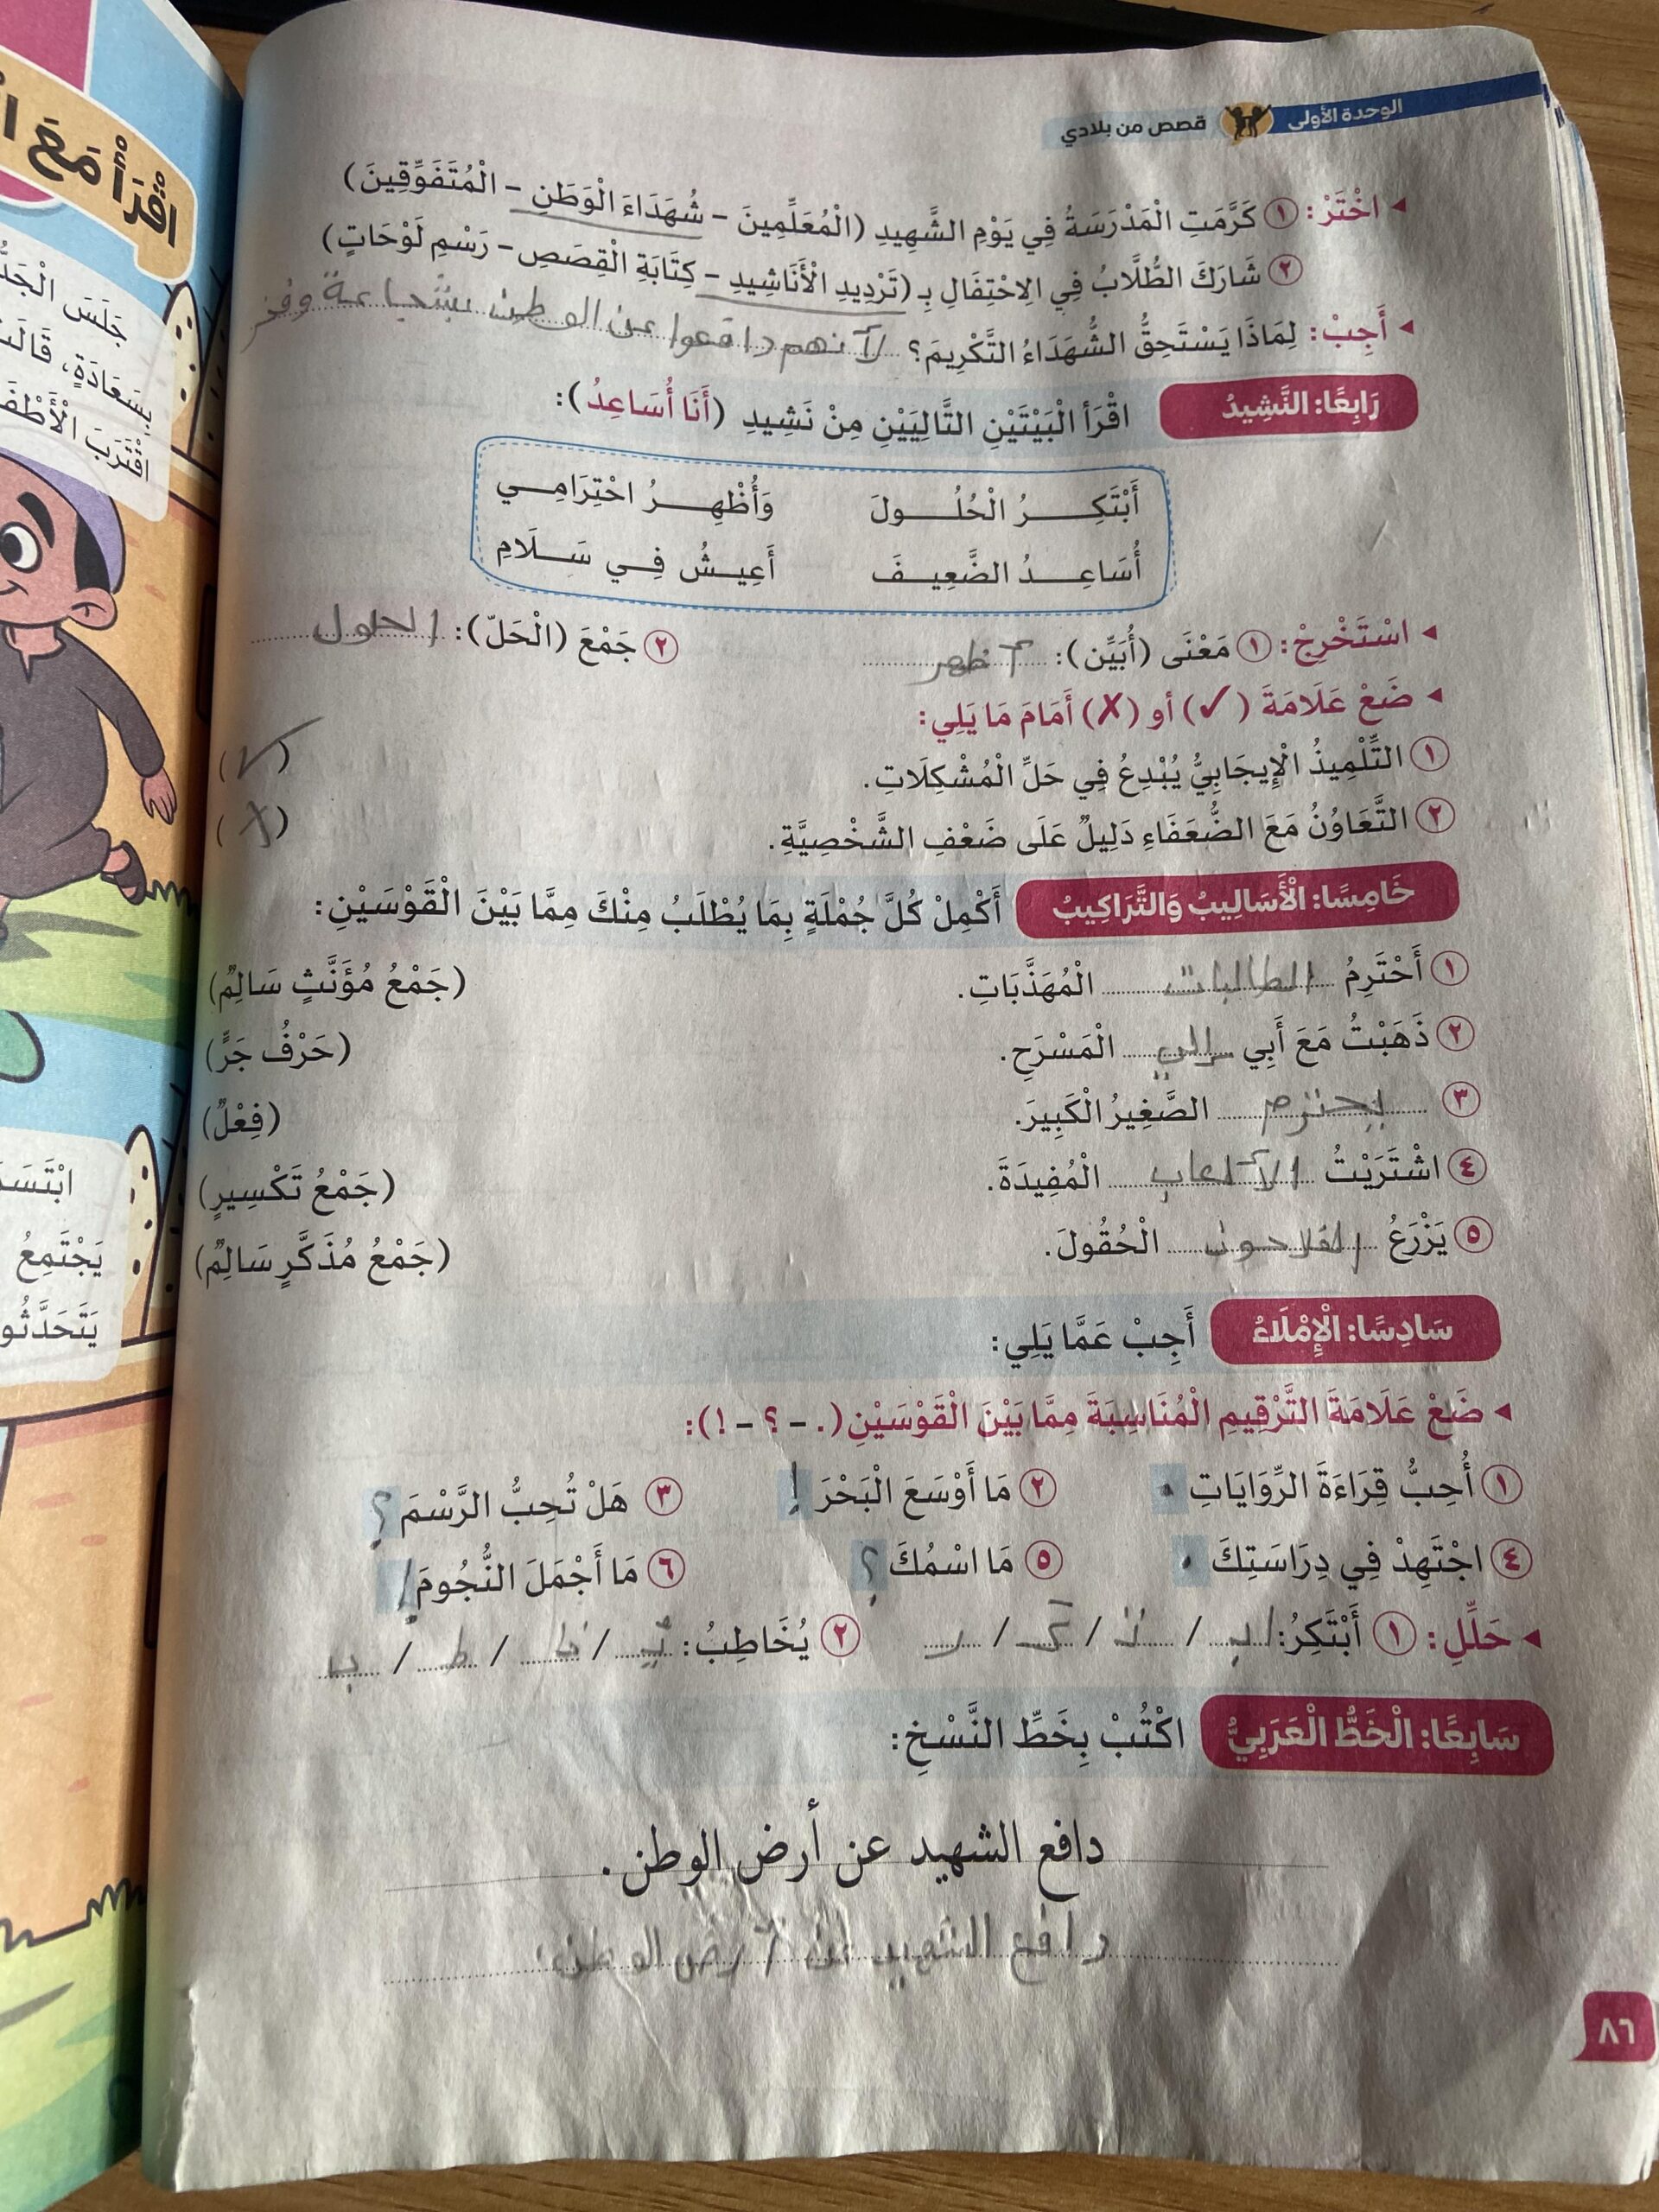 الوحدة الأولى قصص من بلادي
◂ اخْتَرْ: ١ كَرَّمَتِ الْمَدْرَسَةُ فِي يَوْمِ الشَّهِيدِ (الْمُعَلِّمِينَ - شُهَدَاءَ الْوَطَنِ - الْمُتَفَوِّقِينَ)
٢ شَارَكَ الطُّلَّابُ فِي الِاحْتِفَالِ بِـ (تَرْدِيدِ الْأَنَاشِيدِ - كِتَابَةِ الْقِصَصِ - رَسْمِ لَوْحَاتٍ)
◂ أَجِبْ: لِمَاذَا يَسْتَحِقُّ الشُّهَدَاءُ التَّكْرِيمَ؟ لأنهم دافعوا عن الوطن بشجاعة وفخر
رَابِعًا: النَّشِيدُ اقْرَأ الْبَيْتَيْنِ التَّالِيَيْنِ مِنْ نَشِيدِ (أَنَا أُسَاعِدُ):
أَبْتَكِـــــرُ الْحُلُـــــولَ وَأُظْهِـــــرُ احْتِرَامِـــي
أُسَاعِـــــدُ الضَّعِيـــفَ أَعِيـــشُ فِـــي سَـــلَامِ
◂ اسْتَخْرِجْ: ١ مَعْنَى (أُبَيِّن): أظهر ٢ جَمْعَ (الْحَلّ): الحلول
◂ ضَعْ عَلَامَةَ (✓) أو (✗) أَمَامَ مَا يَلِي:
١ التِّلْمِيذُ الْإِيجَابِيُّ يُبْدِعُ فِي حَلِّ الْمُشْكِلَاتِ. (✓)
٢ التَّعَاوُنُ مَعَ الضُّعَفَاءِ دَلِيلٌ عَلَى ضَعْفِ الشَّخْصِيَّةِ. (✗)
خَامِسًا: الْأَسَالِيبُ وَالتَّرَاكِيبُ أَكْمِلْ كُلَّ جُمْلَةٍ بِمَا يُطْلَبُ مِنْكَ مِمَّا بَيْنَ الْقَوْسَيْنِ:
١ أَحْتَرِمُ الطالبات الْمُهَذَّبَاتِ. (جَمْعُ مُؤَنَّثٍ سَالِمٌ)
٢ ذَهَبْتُ مَعَ أَبِي إلى الْمَسْرَحِ. (حَرْفُ جَرٍّ)
٣ يحترم الصَّغِيرُ الْكَبِيرَ. (فِعْلٌ)
٤ اشْتَرَيْتُ الألعاب الْمُفِيدَةَ. (جَمْعُ تَكْسِيرٍ)
٥ يَزْرَعُ الفلاحون الْحُقُولَ. (جَمْعُ مُذَكَّرٍ سَالِمٌ)
سَادِسًا: الْإِمْلَاءُ أَجِبْ عَمَّا يَلِي:
◂ ضَعْ عَلَامَةَ التَّرْقِيمِ الْمُنَاسِبَةَ مِمَّا بَيْنَ الْقَوْسَيْنِ (. - ؟ - !):
١ أُحِبُّ قِرَاءَةَ الرِّوَايَاتِ . ٢ مَا أَوْسَعَ الْبَحْرَ ! ٣ هَلْ تُحِبُّ الرَّسْمَ ؟
٤ اجْتَهِدْ فِي دِرَاسَتِكَ . ٥ مَا اسْمُكَ ؟ ٦ مَا أَجْمَلَ النُّجُومَ !
◂ حَلِّلِ: ١ أَبْتَكِرُ: اب / تـ / كـ / ر ٢ يُخَاطِبُ: يـ / خا / ط / ب
سَابِعًا: الْخَطُّ الْعَرَبِيُّ اكْتُبْ بِخَطِّ النَّسْخِ:
دافع الشهيد عن أرض الوطن.
دافع الشهيد عن أرض الوطن.
٨٦
اقْرَأْ مَعَ
جَلَسَ الْجَدُّ
بِسَعَادَةٍ، قَالَتْ
اقْتَرَبَ الْأَطْفَ
ابْتَسَـ
يَجْتَمِعُ
يَتَحَدَّثُو